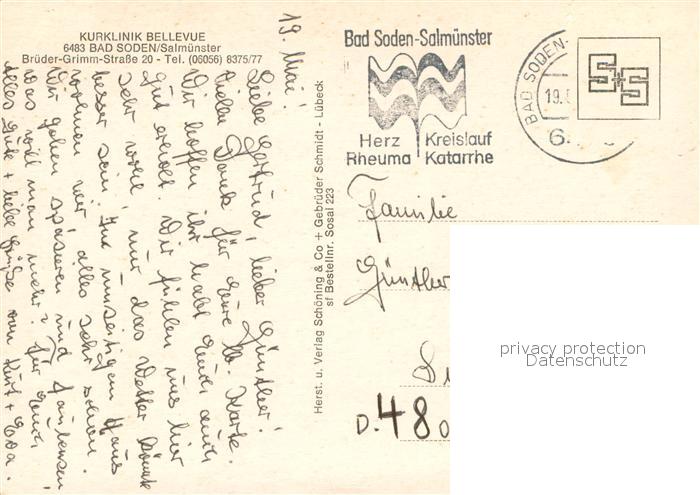 KURKLINIK BELLEVUE
6483 BAD SODEN/Salmünster
Brüder-Grimm-Straße 20 - Tel. (06056) 8375/77
19. Mai!
Liebe Gertrud, lieber Günther!
Vielen Dank für Eure lb. Karte.
Wir hoffen ihr habt Euch auch
gut erholt. Wir fühlen uns hier
sehr wohl, nur das Wetter könnte
besser sein. Im Haus
wir alles sehr schön.
Wir gehen spazieren und faulenzen,
was will man mehr? Für Euch
alles Gute + liebe Grüße von Kurt + Eva.
Herst. u. Verlag Schöning & Co + Gebrüder Schmidt - Lübeck
sf Bestellnr. Sosal 223
Bad Soden-Salmünster
Herz Kreislauf
Rheuma Katarrhe
BAD SODEN-
19.
6
S+S
Familie
Günther
D. 480
privacy protection
Datenschutz